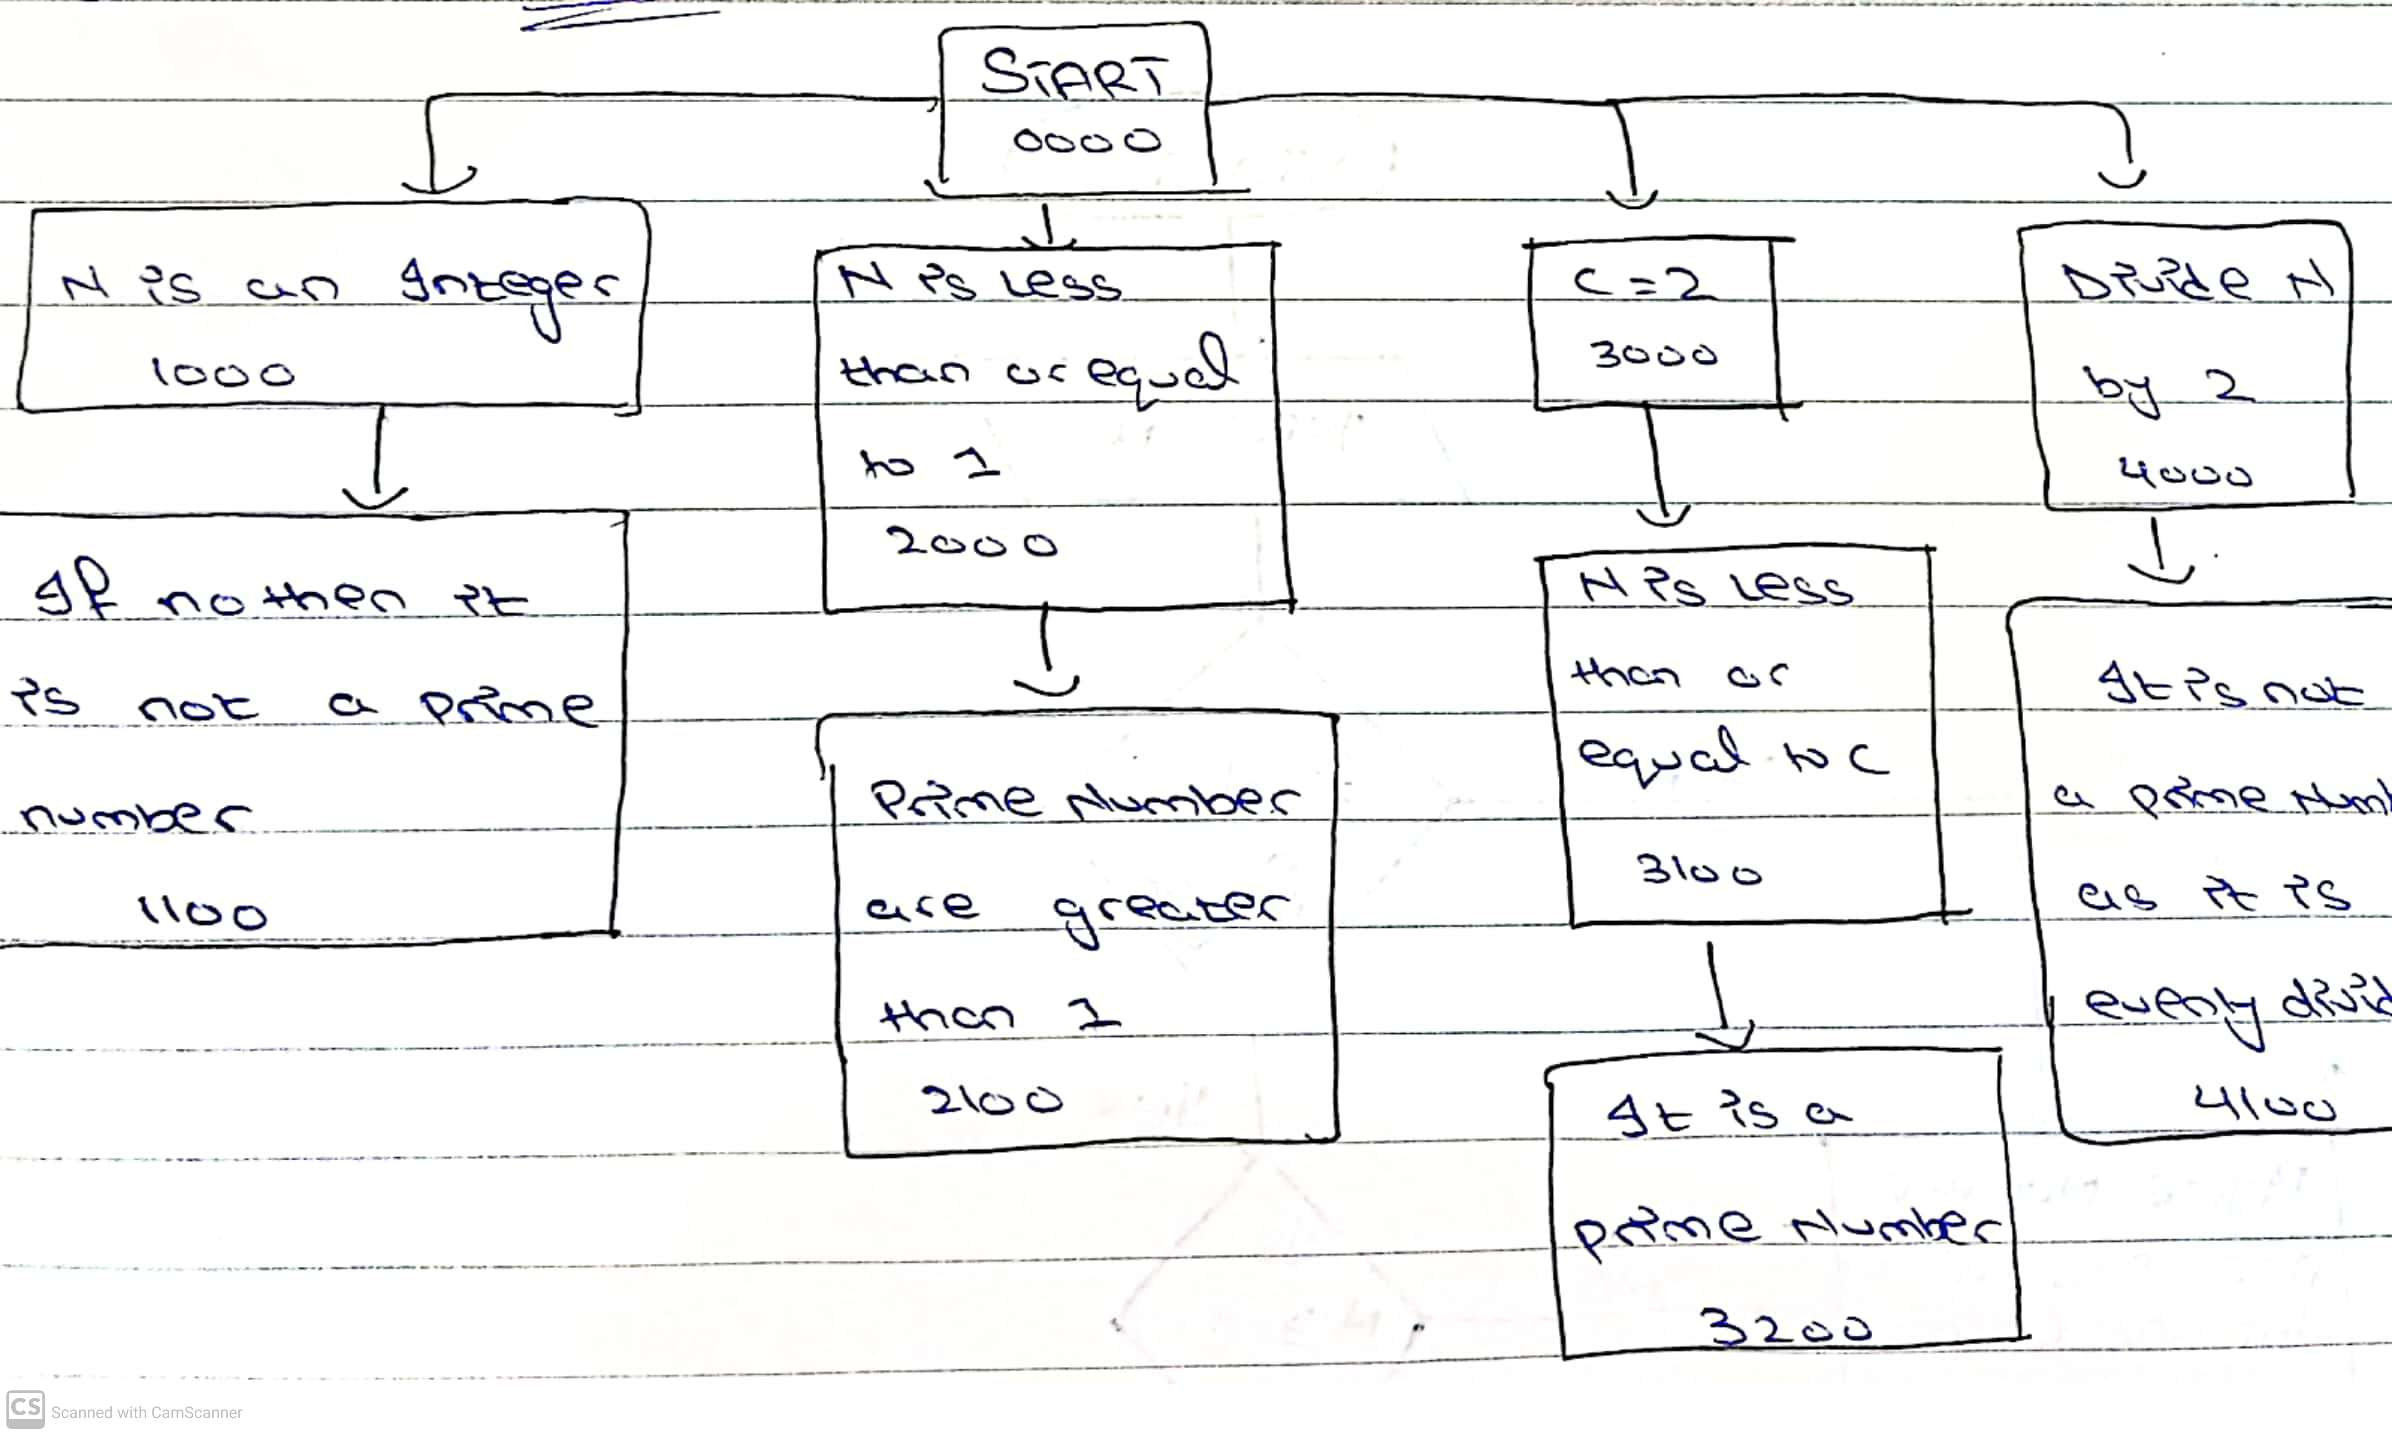 START
0000
N is an Integer
1000
If no then it
is not a prime
number
1100
N is less
than or equal
to 1
2000
Prime Number
are greater
than 1
2100
C = 2
3000
N is less
than or
equal to C
3100
It is a
prime Number
3200
Divide N
by 2
4000
It is not
a prime
as it is
evenly
4100
CS Scanned with CamScanner